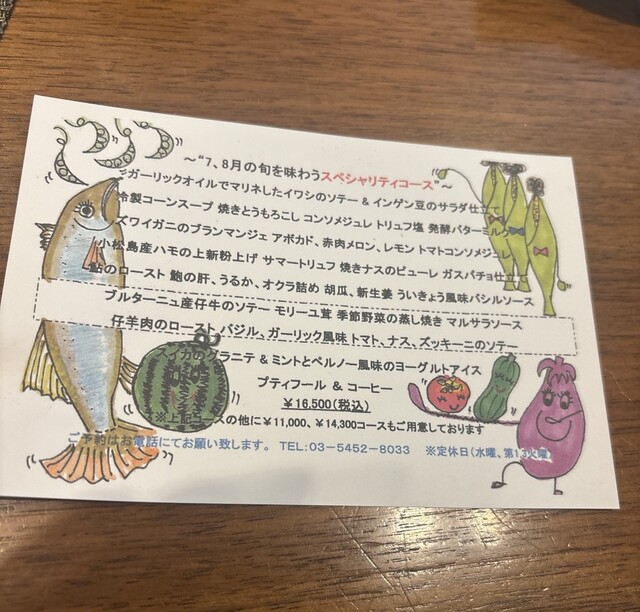 ～"7、8月の旬を味わうスペシャリティコース"～
ガーリックオイルでマリネしたイワシのソテー & インゲン豆のサラダ仕立て
冷製コーンスープ 焼きとうもろこし コンソメジュレ トリュフ塩 発酵バターミルク
ズワイガニのブランマンジェ アボカド、赤肉メロン、レモン トマトコンソメジュレ
小松島産ハモの上新粉上げ サマートリュフ 焼きナスのピューレ ガスパチョ仕立て
鮎のロースト 鮑の肝、うるか、オクラ詰め 胡瓜、新生姜 ういきょう風味バジルソース
ブルターニュ産仔牛のソテー モリーユ茸 季節野菜の蒸し焼き マルサラソース
仔羊肉のロースト バジル、ガーリック風味 トマト、ナス、ズッキーニのソテー
スイカのグラニテ & ミントとペルノー風味のヨーグルトアイス
プティフール & コーヒー
￥16,500(税込)
※上記コースの他に￥11,000、￥14,300コースもご用意しております
ご予約はお電話にてお願い致します。 TEL:03-5452-8033 ※定休日(水曜、第1,3火曜)